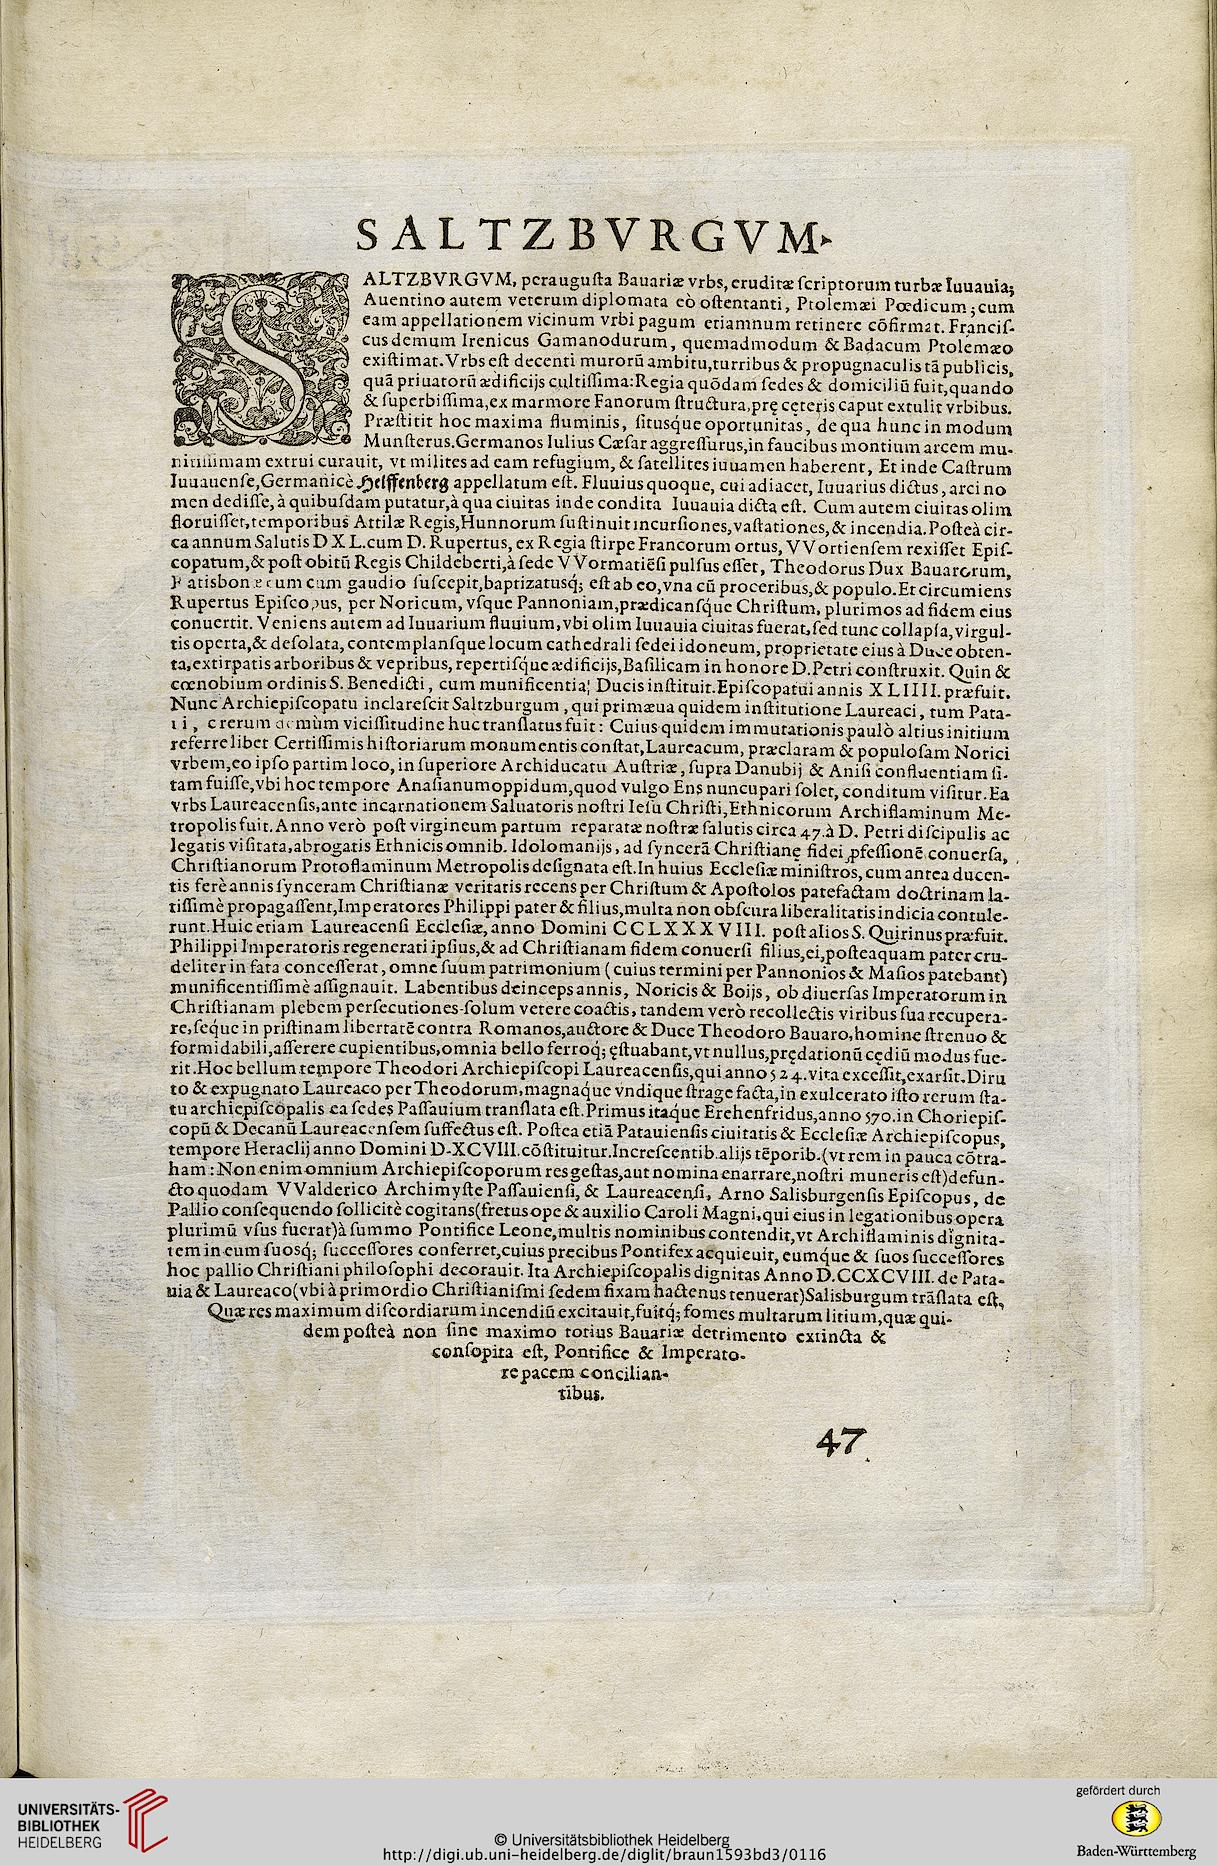 SALTZBVRGVM.
SALTZBVRGVM, peraugusta Bauariæ vrbs, eruditæ scriptorum turbæ Iuuauia;
Auentino autem veterum diplomata eò ostentanti, Ptolemæi Pœdicum; cum
eam appellationem vicinum vrbi pagum etiamnum retinere cõfirmat. Francis-
cus demum Irenicus Gamanodurum, quemadmodum & Badacum Ptolemæo
existimat. Vrbs est decenti murorũ ambitu, turribus & propugnaculis tã publicis,
quã priuatorũ ædificijs cultissima: Regia quõdam sedes & domiciliũ fuit, quando
& superbissima, ex marmore Fanorum structura, prę cęteris caput extulit vrbibus.
Præstitit hoc maxima fluminis, situsque oportunitas, de qua hunc in modum
Munsterus. Germanos Iulius Cæsar aggressurus, in faucibus montium arcem mu-
nitissimam extrui curauit, vt milites ad eam refugium, & satellites iuuamen haberent, Et inde Castrum
Iuuauense, Germanicè Helffenberg appellatum est. Fluuius quoque, cui adiacet, Iuuarius dictus, arci no
men dedisse, à quibusdam putatur, à qua ciuitas inde condita Iuuauia dicta est. Cum autem ciuitas olim
floruisset, temporibus Attilæ Regis, Hunnorum sustinuit incursiones, vastationes, & incendia. Posteà cir-
ca annum Salutis DXL. cum D. Rupertus, ex Regia stirpe Francorum ortus, VVortiensem rexisset Epis-
copatum, & post obitũ Regis Childeberti, à sede VVormatiẽsi pulsus esset, Theodorus Dux Bauarorum,
Ratisbonæ eum cum gaudio suscepit, baptizatusq́; est ab eo, vna cũ proceribus, & populo. Et circumiens
Rupertus Episcopus, per Noricum, vsque Pannoniam, prædicansq́ue Christum, plurimos ad fidem eius
conuertit. Veniens autem ad Iuuarium fluuium, vbi olim Iuuauia ciuitas fuerat, sed tunc collapsa, virgul-
tis operta, & desolata, contemplansque locum cathedrali sedei idoneum, proprietate eius à Duce obten-
ta, extirpatis arboribus & vepribus, repertisq́ue ædificijs, Basilicam in honore D. Petri construxit. Quin &
cœnobium ordinis S. Benedicti, cum munificentia Ducis instituit. Episcopatui annis XLIIII. præfuit.
Nunc Archiepiscopatu inclarescit Saltzburgum, qui primæua quidem institutione Laureaci, tum Pata-
uij, rerum demùm vicissitudine huc translatus fuit: Cuius quidem immutationis paulò altius initium
referre libet Certissimis historiarum monumentis constat, Laureacum, præclaram & populosam Norici
vrbem, eo ipso partim loco, in superiore Archiducatu Austriæ, supra Danubij & Anisi confluentiam si-
tam fuisse, vbi hoc tempore Anasianum oppidum, quod vulgo Ens nuncupari solet, conditum visitur. Ea
vrbs Laureacensis, ante incarnationem Saluatoris nostri Iesu Christi, Ethnicorum Archiflaminum Me-
tropolis fuit. Anno verò post virgineum partum reparatæ nostræ salutis circa 47. à D. Petri discipulis ac
legatis visitata, abrogatis Ethnicis omnib. Idolomanijs, ad syncerã Christianę fidei ꝓfessionẽ conuersa,
Christianorum Protoflaminum Metropolis designata est. In huius Ecclesiæ ministros, cum antea ducen-
tis ferè annis synceram Christianæ veritatis recens per Christum & Apostolos patefactam doctrinam la-
tissimè propagassent, Imperatores Philippi pater & filius, multa non obscura liberalitatis indicia contule-
runt. Huic etiam Laureacensi Ecclesiæ, anno Domini CCLXXXVIII. post alios S. Quirinus præfuit.
Philippi Imperatoris regenerati ipsius, & ad Christianam fidem conuersi filius, ei, posteaquam pater cru-
deliter in fata concesserat, omne suum patrimonium (cuius termini per Pannonios & Masios patebant)
munificentissimè assignauit. Labentibus deinceps annis, Noricis & Boijs, ob diuersas Imperatorum in
Christianam plebem persecutiones solum vetere coactis, tandem verò recollectis viribus sua recupera-
re, seq́ue in pristinam libertatẽ contra Romanos, auctore & Duce Theodoro Bauaro, homine strenuo &
formidabili, asserere cupientibus, omnia bello ferroq́; ęstuabant, vt nullus, prędationũ cędiũ modus fue-
rit. Hoc bellum tempore Theodori Archiepiscopi Laureacensis, qui anno 524. vita excessit, exarsit. Diru
to & expugnato Laureaco per Theodorum, magnaq́ue vndique strage facta, in exulcerato isto rerum sta-
tu archiepiscopalis ea sedes Passauium translata est. Primus itaq́ue Erchenfridus, anno 570. in Choriepis-
copũ & Decanũ Laureacensem suffectus est. Postea etiã Patauiensis ciuitatis & Ecclesiæ Archiepiscopus,
tempore Heraclij anno Domini D.XCVIII. cõstituitur. Increscentib. alijs tẽporib. (vt rem in pauca cõtra-
ham: Non enim omnium Archiepiscoporum res gestas, aut nomina enarrare, nostri muneris est) defun-
cto quodam VValderico Archimyste Passauiensi, & Laureacensi, Arno Salisburgensis Episcopus, de
Pallio consequendo sollicitè cogitans (fretus ope & auxilio Caroli Magni, qui eius in legationibus opera
plurimũ vsus fuerat) à summo Pontifice Leone, multis nominibus contendit, vt Archiflaminis dignita-
tem in eum suosq́; successores conferret, cuius precibus Pontifex acquieuit, eumq́ue & suos successores
hoc pallio Christiani philosophi decorauit. Ita Archiepiscopalis dignitas Anno D.CCXCVIII. de Pata-
uia & Laureaco (vbi à primordio Christianismi sedem fixam hactenus tenuerat) Salisburgum trãslata est,
Quæ res maximum discordiarum incendiũ excitauit, fuitq́; fomes multarum litium, quæ qui-
dem posteà non sine maximo totius Bauariæ detrimento extincta &
consopita est, Pontifice & Imperato-
re pacem concilian-
tibus.
47
UNIVERSITÄTS-
BIBLIOTHEK
HEIDELBERG
© Universitätsbibliothek Heidelberg
http://digi.ub.uni-heidelberg.de/diglit/braun1593bd3/0116
gefördert durch
Baden-Württemberg